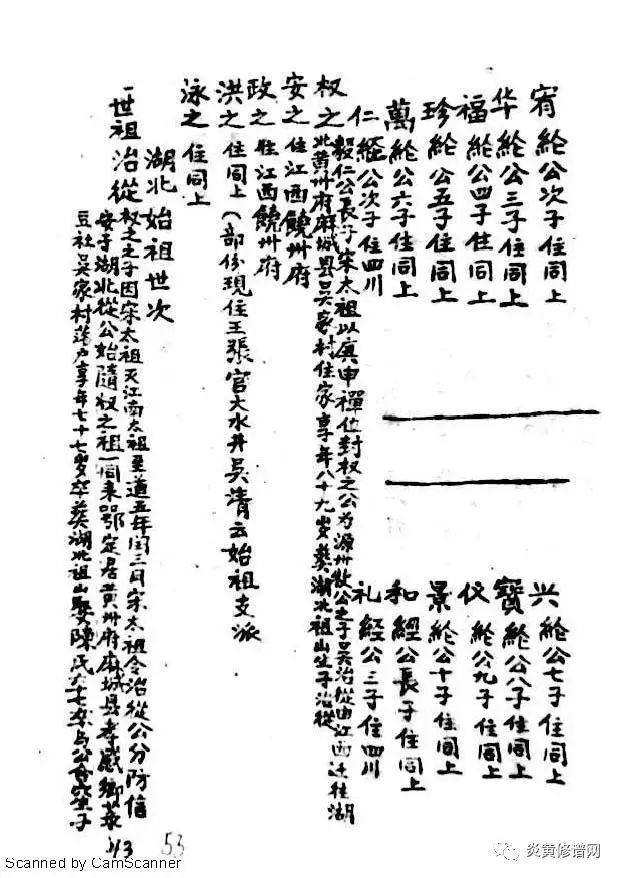 宥 綸公次子住同上
华 綸公三子住同上
福 綸公四子住同上
珍 綸公五子住同上
萬 綸公六子住同上
仁 經公次子住四川
兴 綸公七子住同上
寶 綸公八子住同上
仪 綸公九子住同上
景 綸公十子住同上
和 經公長子住同上
礼 經公三子住四川
权之 毅仁公長子宋太祖以庚申禪位封权之公为源州牧公之子吴治從由江西迁往湖
北黄州府麻城县吴家村住家享年八十九岁葬湖北祖山生子治從
安之 住江西饒州府
政之 住江西饒州府
洪之 住同上(部份現住王張官大水井吴清云始祖支派
泳之 住同上
湖北始祖世次
一世祖 治從 权之之子因宋太祖灭江南太祖至道五年闰三月宋太祖令治從公分防信
安于湖北從公始隨权之祖一同来鄂定居黄州府麻城县孝感鄉菜
豆社吴家村落户享年七十七岁卒葬湖北祖山娶陳氏六十七卒与公合室子
53
43
Scanned by CamScanner
炎黄修谱网